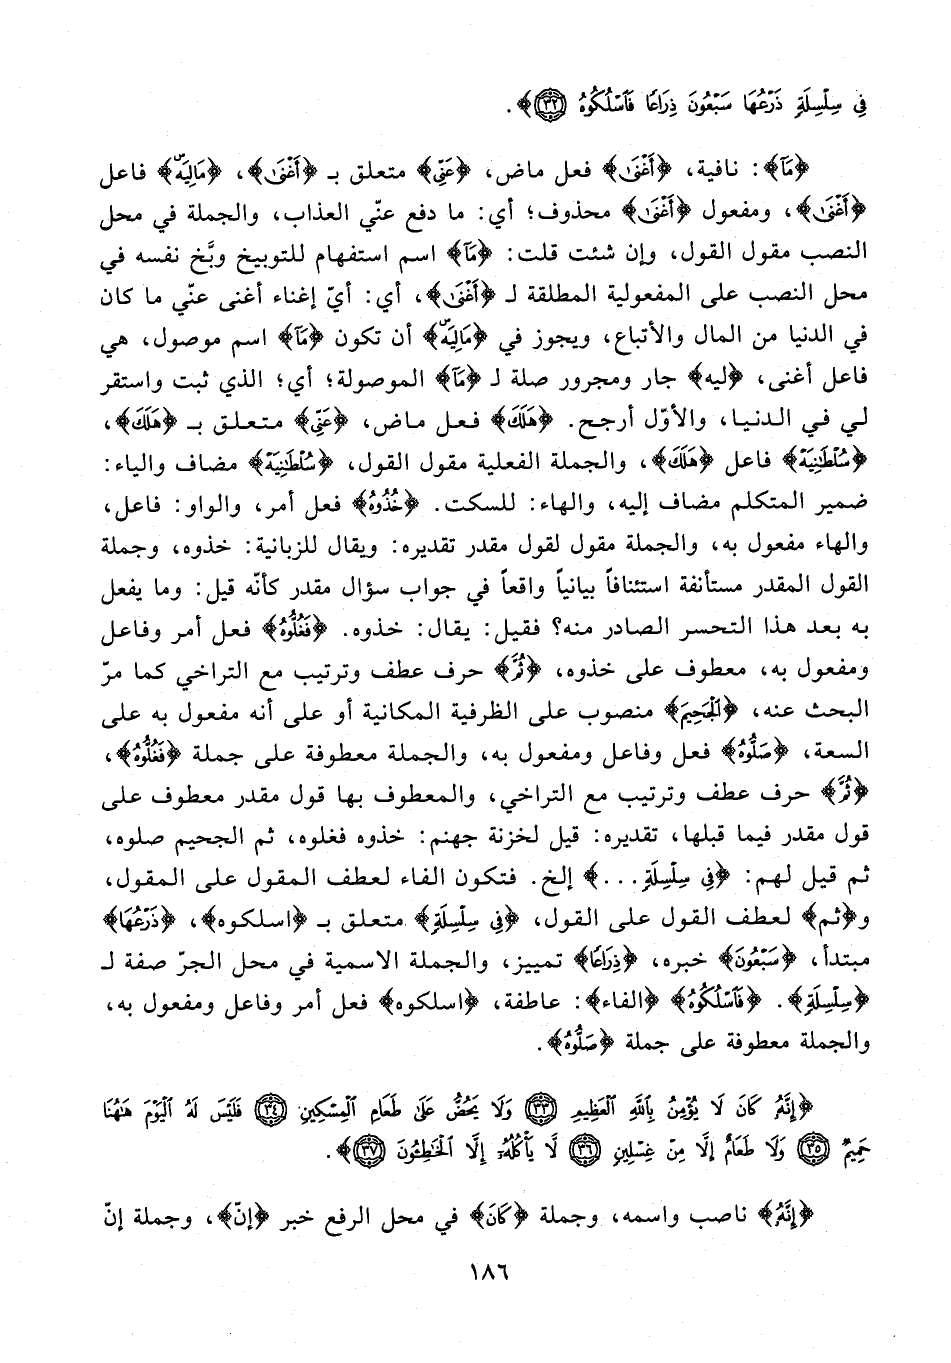 فِي سِلْسِلَةٍ ذَرْعُهَا سَبْعُونَ ذِرَاعًا فَاسْلُكُوهُ ﴿٣٢﴾﴾.
﴿مَآ﴾: نافية، ﴿أَغْنَى﴾ فعل ماض، ﴿عَنِّي﴾ متعلق بـ ﴿أَغْنَى﴾، ﴿مَالِيَهْ﴾ فاعل
﴿أَغْنَى﴾، ومفعول ﴿أَغْنَى﴾ محذوف؛ أي: ما دفع عنّي العذاب، والجملة في محل
النصب مقول القول، وإن شئت قلت: ﴿مَآ﴾ اسم استفهام للتوبيخ وبَّخ نفسه في
محل النصب على المفعولية المطلقة لـ ﴿أَغْنَى﴾، أي: أيّ إغناء أغنى عنّي ما كان
في الدنيا من المال والأتباع، ويجوز في ﴿مَالِيَهْ﴾ أن تكون ﴿مَآ﴾ اسم موصول، هي
فاعل أغنى، ﴿ليه﴾ جار ومجرور صلة لـ ﴿مَآ﴾ الموصولة؛ أي؛ الذي ثبت واستقر
لي في الدنيا، والأوّل أرجح. ﴿هَلَكَ﴾ فعل ماض، ﴿عَنِّي﴾ متعلق بـ ﴿هَلَكَ﴾،
﴿سُلْطَانِيَهْ﴾ فاعل ﴿هَلَكَ﴾، والجملة الفعلية مقول القول، ﴿سُلْطَانِيَهْ﴾ مضاف والياء:
ضمير المتكلم مضاف إليه، والهاء: للسكت. ﴿خُذُوهُ﴾ فعل أمر، والواو: فاعل،
والهاء مفعول به، والجملة مقول لقول مقدر تقديره: ويقال للزبانية: خذوه، وجملة
القول المقدر مستأنفة استئنافاً بيانياً واقعاً في جواب سؤال مقدر كأنّه قيل: وما يفعل
به بعد هذا التحسر الصادر منه؟ فقيل: يقال: خذوه. ﴿فَغُلُّوهُ﴾ فعل أمر وفاعل
ومفعول به، معطوف على خذوه، ﴿ثُمَّ﴾ حرف عطف وترتيب مع التراخي كما مرّ
البحث عنه، ﴿الْجَحِيمَ﴾ منصوب على الظرفية المكانية أو على أنه مفعول به على
السعة، ﴿صَلُّوهُ﴾ فعل وفاعل ومفعول به، والجملة معطوفة على جملة ﴿فَغُلُّوهُ﴾،
﴿ثُمَّ﴾ حرف عطف وترتيب مع التراخي، والمعطوف بها قول مقدر معطوف على
قول مقدر فيما قبلها، تقديره: قيل لخزنة جهنم: خذوه فغلوه، ثم الجحيم صلوه،
ثم قيل لهم: ﴿فِي سِلْسِلَةٍ ...﴾ إلخ. فتكون الفاء لعطف المقول على المقول،
و﴿ثم﴾ لعطف القول على القول، ﴿فِي سِلْسِلَةٍ﴾ متعلق بـ ﴿اسلكوه﴾، ﴿ذَرْعُهَا﴾
مبتدأ، ﴿سَبْعُونَ﴾ خبره، ﴿ذِرَاعًا﴾ تمييز، والجملة الاسمية في محل الجرّ صفة لـ
﴿سِلْسِلَةٍ﴾. ﴿فَاسْلُكُوهُ﴾ ﴿الفاء﴾: عاطفة، ﴿اسلكوه﴾ فعل أمر وفاعل ومفعول به،
والجملة معطوفة على جملة ﴿صَلُّوهُ﴾.
﴿إِنَّهُ كَانَ لَا يُؤْمِنُ بِاللَّهِ الْعَظِيمِ ﴿٣٣﴾ وَلَا يَحُضُّ عَلَى طَعَامِ الْمِسْكِينِ ﴿٣٤﴾ فَلَيْسَ لَهُ الْيَوْمَ هَاهُنَا
حَمِيمٌ ﴿٣٥﴾ وَلَا طَعَامٌ إِلَّا مِنْ غِسْلِينٍ ﴿٣٦﴾ لَّا يَأْكُلُهُ إِلَّا الْخَاطِئُونَ ﴿٣٧﴾﴾.
﴿إِنَّهُ﴾ ناصب واسمه، وجملة ﴿كَانَ﴾ في محل الرفع خبر ﴿إنّ﴾، وجملة إنّ
١٨٦